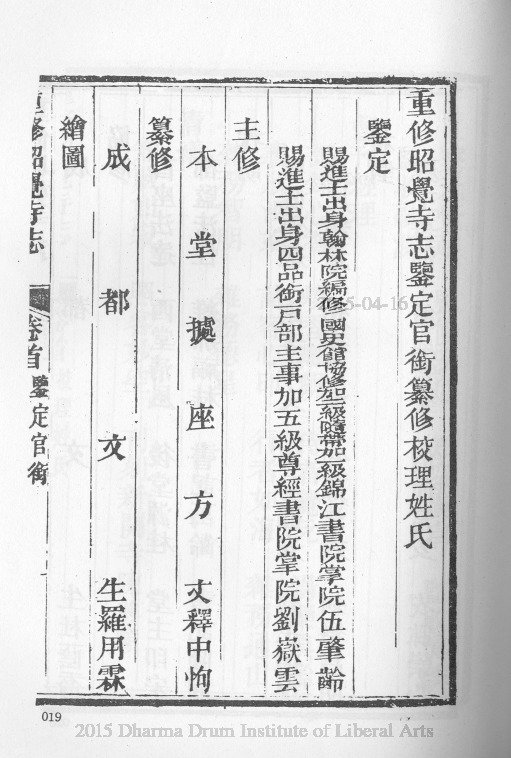 重修昭覺寺志鑒定官銜纂修校理姓氏
鑒定
賜進士出身翰林院編修國史館協修加三級隨帶加一級錦江書院掌院伍肇齡
賜進士出身四品銜戶部主事加五級尊經書院掌院劉嶽雲
主修
本堂據座方丈釋中恂
纂修
成都文生羅用霖
繪圖
重修昭覺寺志 卷首 鑒定官銜
019
2015 Dharma Drum Institute of Liberal Arts